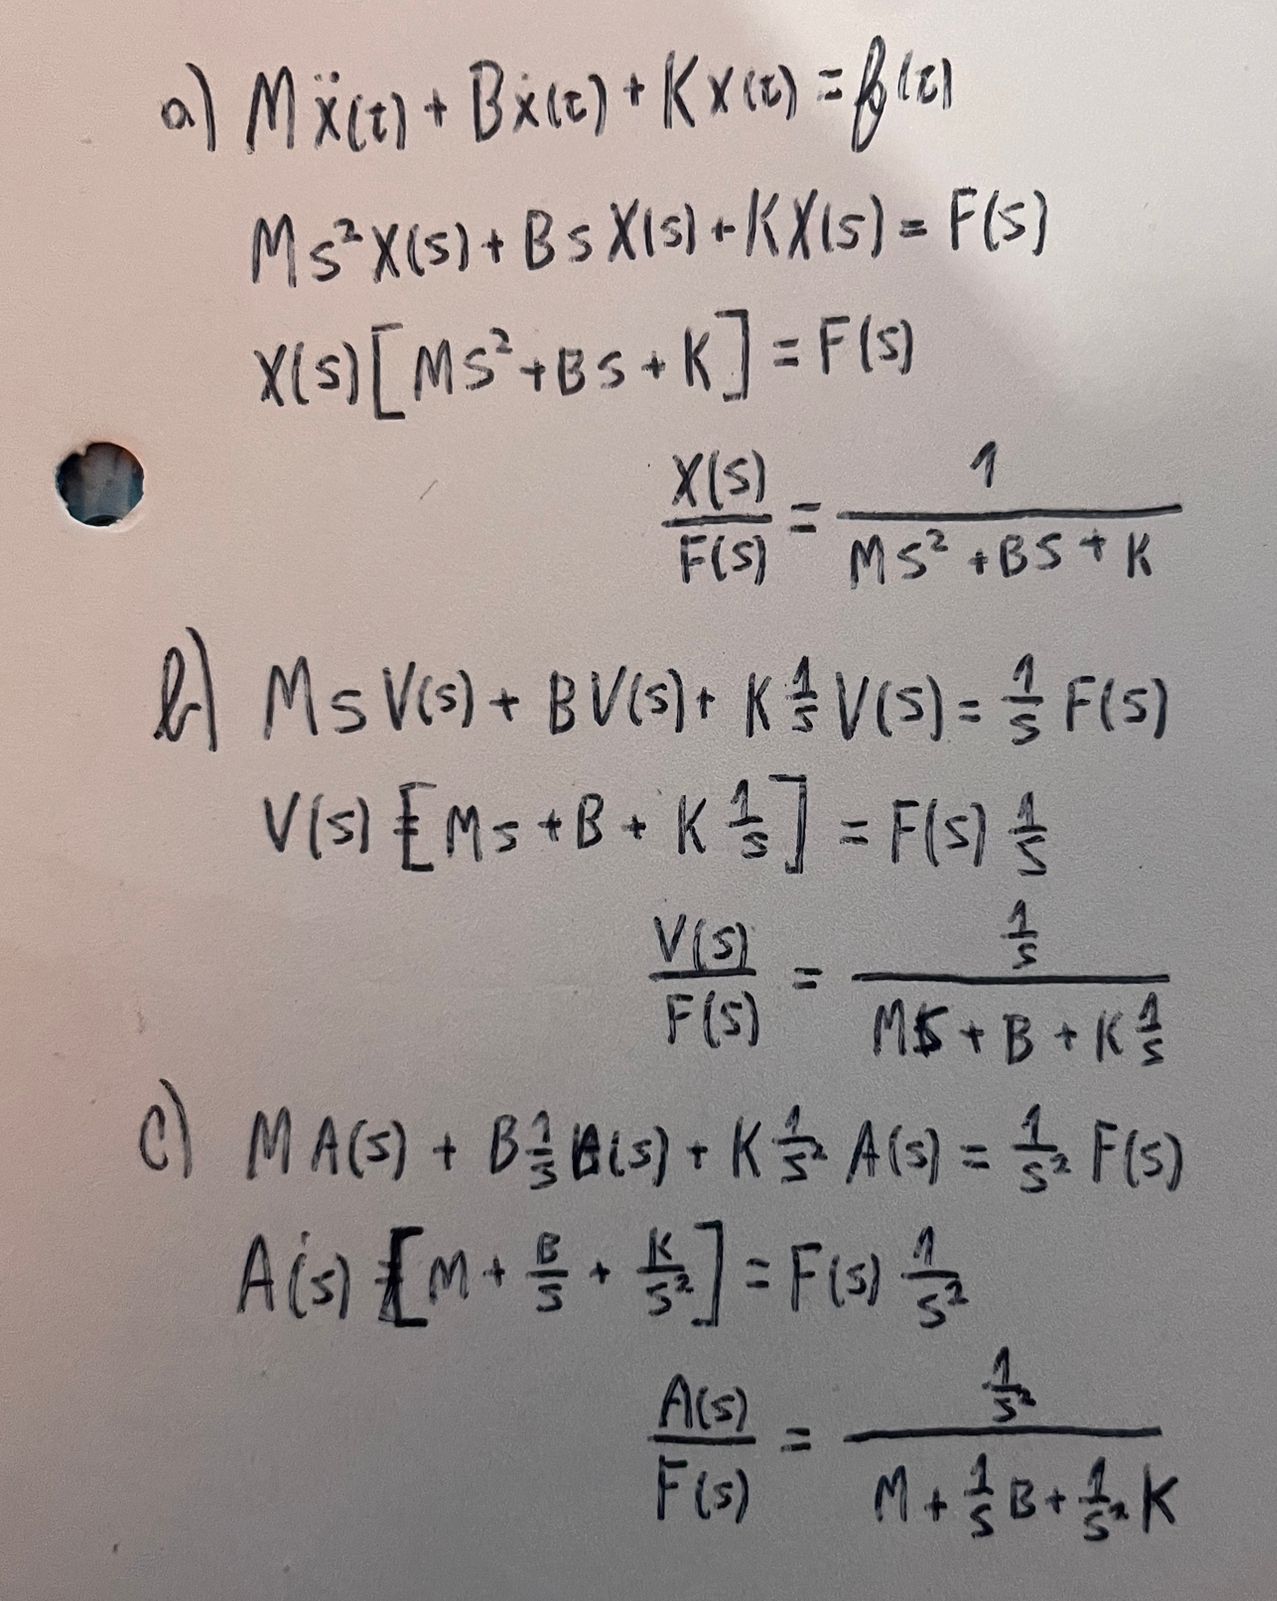 a) Mẍ(t) + Bẋ(t) + Kx(t) = f(t)
Ms²X(s) + BsX(s) + KX(s) = F(s)
X(s)[Ms² + Bs + K] = F(s)
X(s)/F(s) = 1/(Ms² + Bs + K)
b) MsV(s) + BV(s) + K 1/s V(s) = 1/s F(s)
V(s)[Ms + B + K 1/s] = F(s) 1/s
V(s)/F(s) = (1/s)/(Ms + B + K 1/s)
c) MA(s) + B 1/s A(s) + K 1/s² A(s) = 1/s² F(s)
A(s)[M + B/s + K/s²] = F(s) 1/s²
A(s)/F(s) = (1/s²)/(M + 1/s B + 1/s² K)